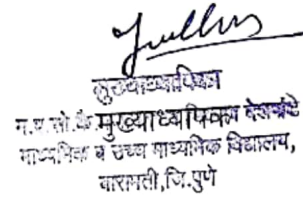 मुख्याध्यापिका
म.ए.सो.कै. मुख्याध्यापिका
माध्यमिक व उच्च माध्यमिक विद्यालय,
बारामती,जि.पुणे